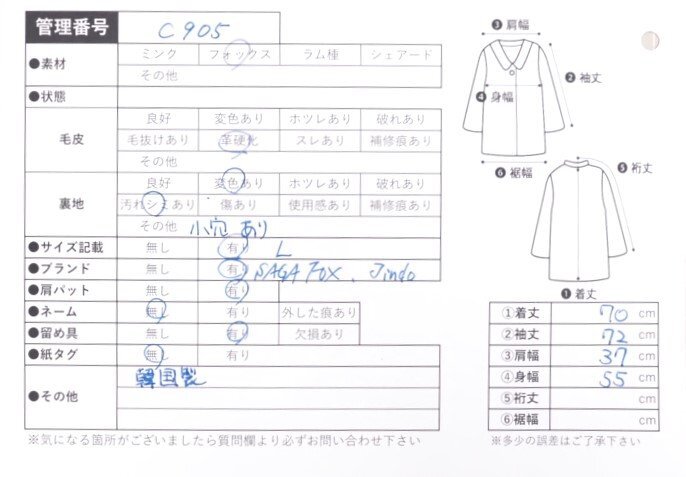 管理番号 C905
●素材 ミンク フォックス ラム種 シェアード
その他
●状態
毛皮 良好 変色あり ホツレあり 破れあり
毛抜けあり 革硬化 スレあり 補修痕あり
その他
裏地 良好 変色あり ホツレあり 破れあり
汚れシミあり 傷あり 使用感あり 補修痕あり
その他 小穴あり
●サイズ記載 無し 有り L
●ブランド 無し 有り SAGA FOX. Jindo
●肩パット 無し 有り
●ネーム 無し 有り 外した痕あり
●留め具 無し 有り 欠損あり
●紙タグ 無し 有り
●その他 韓国製
※気になる箇所がございましたら質問欄より必ずお問い合わせ下さい
❸肩幅
❷袖丈
❹身幅
❻裾幅
❺裄丈
❶着丈
①着丈 70 cm
②袖丈 72 cm
③肩幅 37 cm
④身幅 55 cm
⑤裄丈 cm
⑥裾幅 cm
※多少の誤差はご了承下さい